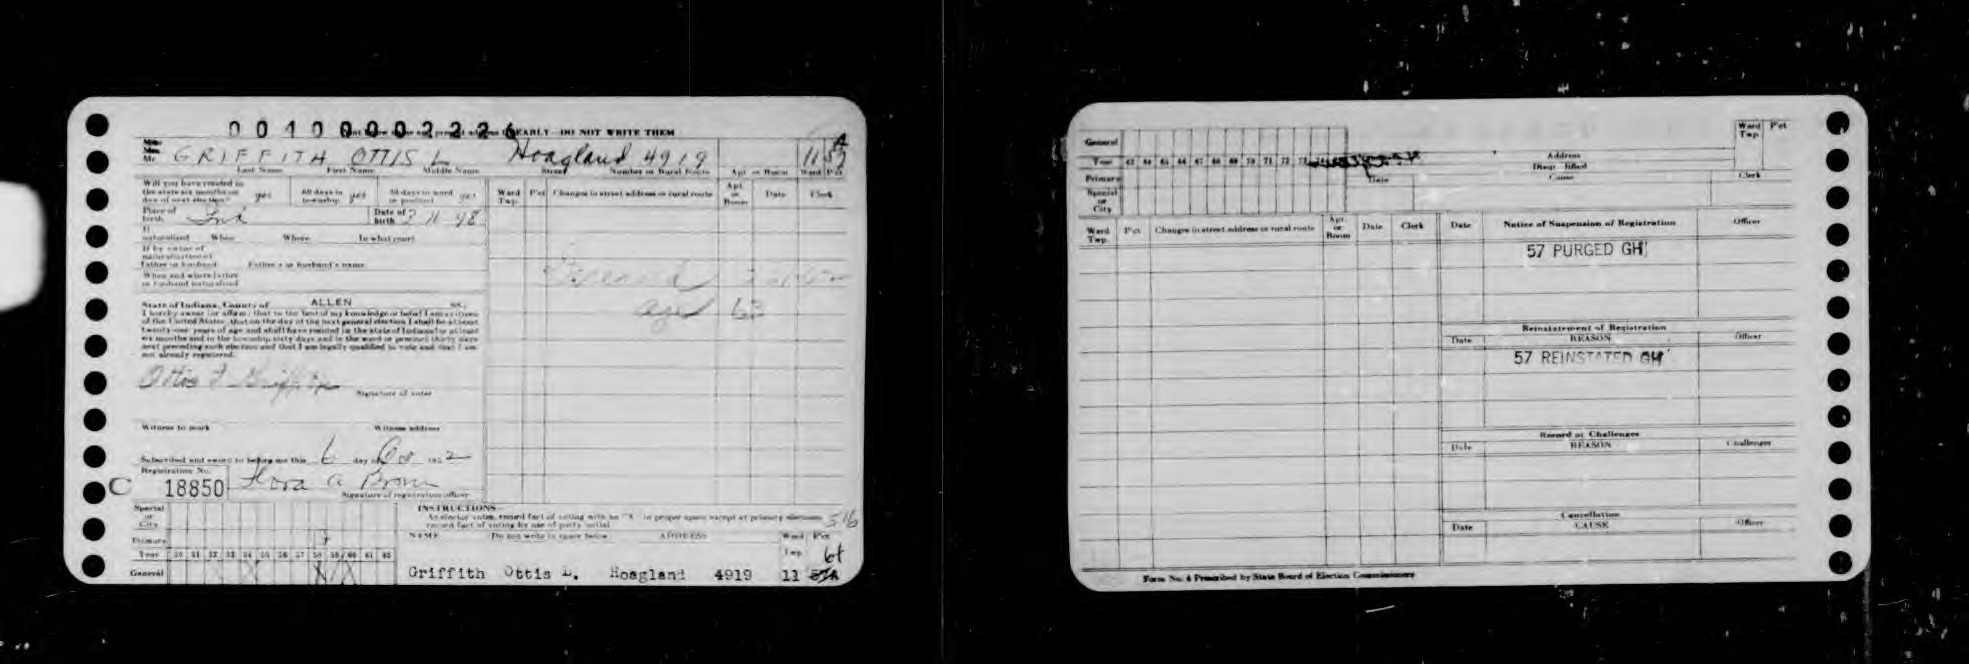 0010000222
EARLY - DO NOT WRITE THEM
Miss
Mrs.
Mr. GRIFFITH OTTIS L Hoagland 4919 11 57 A
Last Name First Name Middle Name Street Number or Rural Route Apt or Room Ward Pct
Will you have resided in the state six months on day of next election? yes 60 days in township yes 30 days in ward or precinct yes
Place of birth Ind Date of birth 11 98
If naturalized When Where In what court
If by virtue of naturalization of Father or husband Father's or husband's name
When and where father or husband naturalized
State of Indiana, County of ALLEN ss.
I hereby swear (or affirm) that to the best of my knowledge or belief I am a citizen
of the United States, that on the day of the next general election I shall be at least
twenty-one years of age and shall have resided in the state of Indiana for at least
six months and in the township sixty days and in the ward or precinct thirty days
next preceding such election and that I am legally qualified to vote and that I am
not already registered.
Ottis L Griffith
Signature of voter
Witness to mark Witness address
Subscribed and sworn to before me this 6 day of Oct 1952
Registration No.
C 18850 Flora A Brown
Signature of registration officer
Ward Twp. Pct Changes in street address or rural route Apt or Room Date Clerk
Deceased
age 63
Special or City
Primary
Year 50 51 52 53 54 55 56 57 58 59 60 61 62
General
INSTRUCTIONS
As elector votes, record fact of voting with an "X" in proper space except at primary elections
record fact of voting by use of party initial. 516
NAME (Do not write in space below) ADDRESS Ward Twp. Pct
Griffith Ottis L. Hoagland 4919 11 57A 6t
General
Year 63 64 65 66 67 68 69 70 71 72 73
Primary
Special or City
Address
Ward Twp. Pct
Disqualified
Date Cause Clerk
Ward Twp. Pct Changes in street address or rural route Apt or Room Date Clerk
Date Notice of Suspension of Registration Officer
57 PURGED GH
Reinstatement of Registration
Date REASON Officer
57 REINSTATED GH
Record of Challenges
Date REASON Challenger
Cancellation
Date CAUSE Officer
Form No. 4 Prescribed by State Board of Election Commissioners